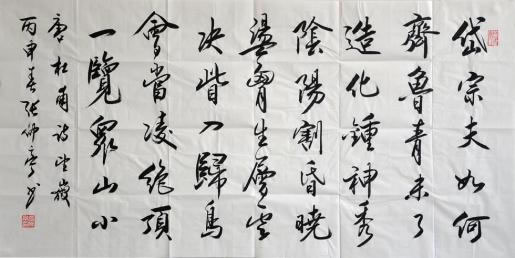 岱宗夫如何
齊魯青未了
造化鍾神秀
陰陽割昏曉
盪胷生層雲
决眥入歸鳥
會當凌絶頂
一覽衆山小
唐杜甫詩望嶽
丙申春張仰亭書